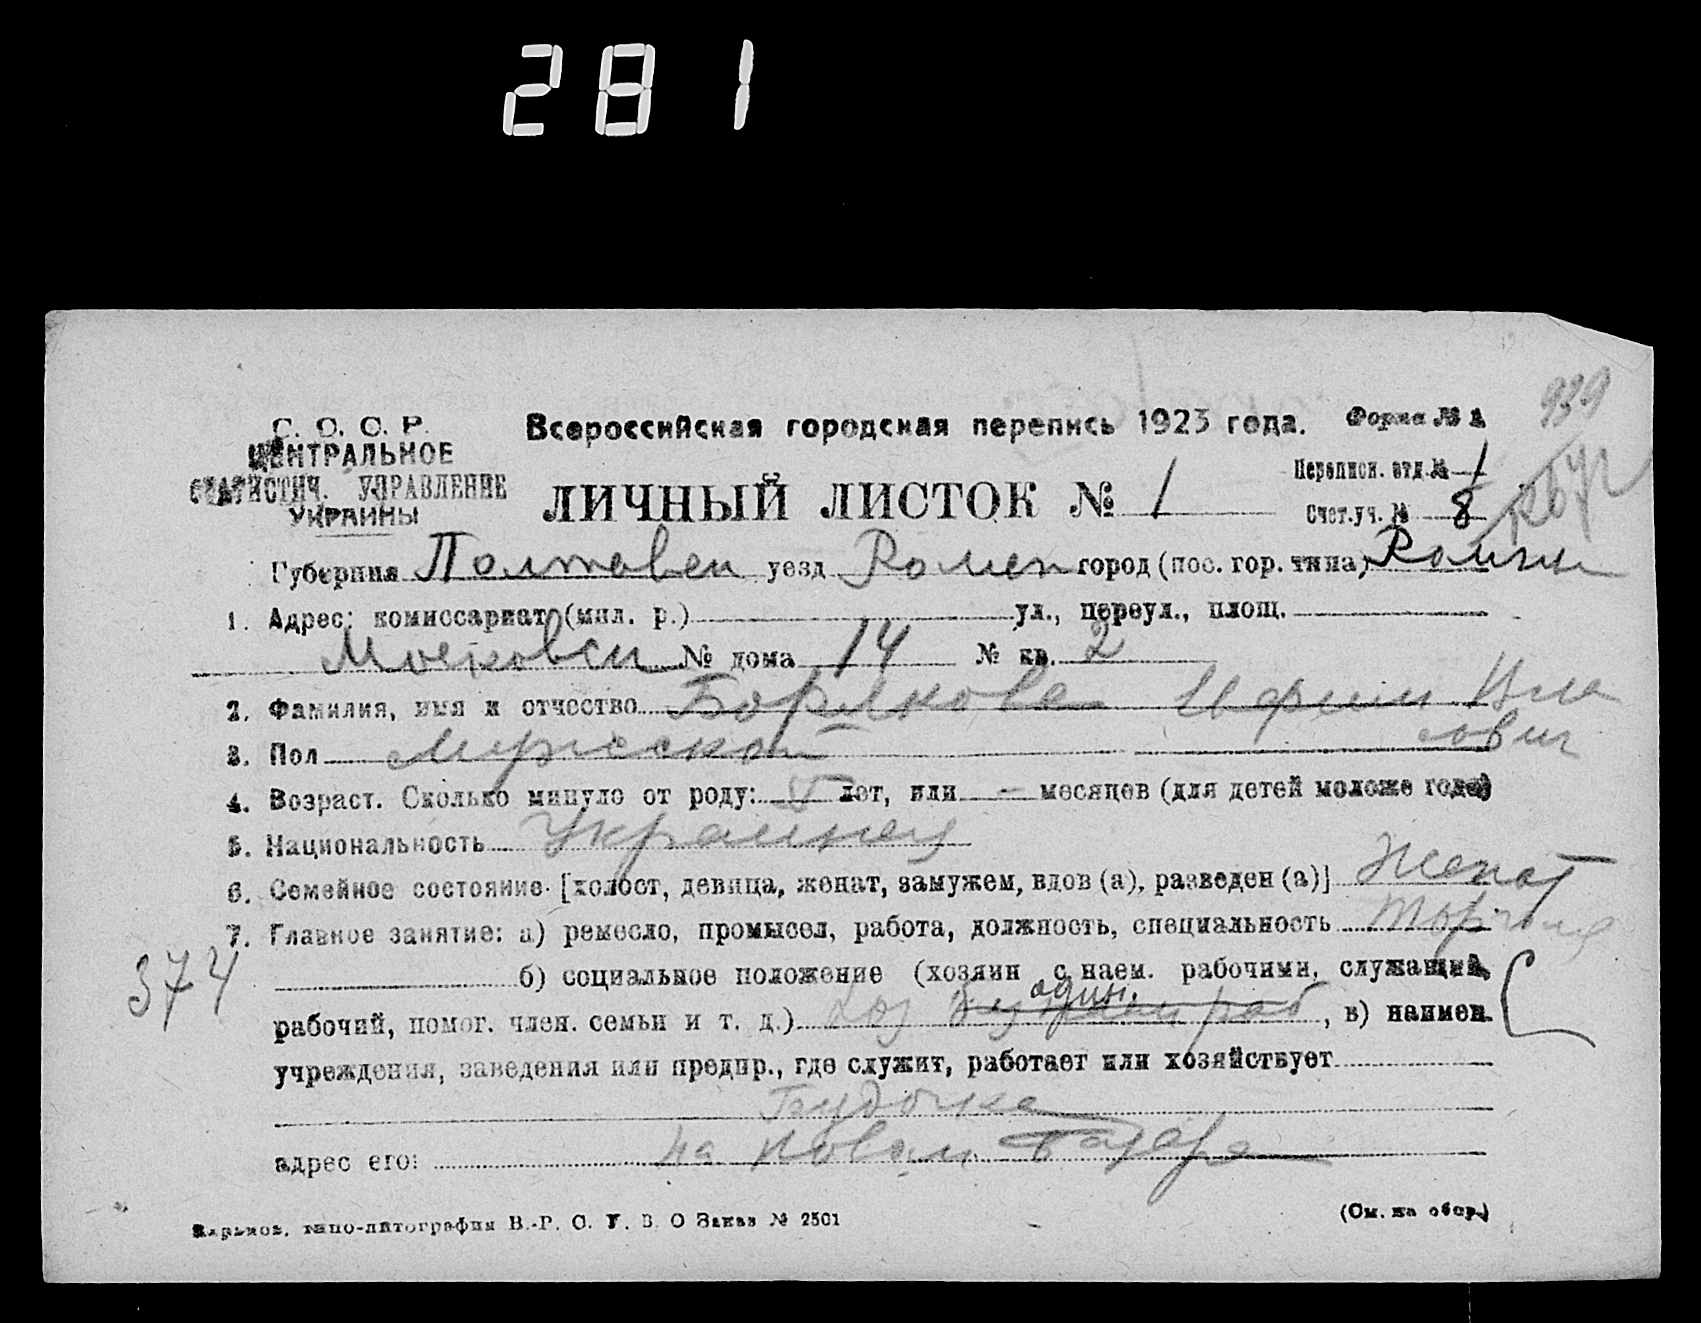 281
С. С. С. Р.
ЦЕНТРАЛЬНОЕ
СТАТИСТИЧ. УПРАВЛЕНИЕ
УКРАИНЫ
Всероссийская городская перепись 1923 года. Форма № 1
939
ЛИЧНЫЙ ЛИСТОК № 1
Переписн. отд. № 1
Счет. уч. № 8
Губерния Полтавск уезд Ромен город (пос. гор. типа) Ромны
1. Адрес: комиссариат (мил. р.) ул., переул., площ.
Московск № дома 14 № кв. 2
2. Фамилия, имя и отчество
3. Пол мужской
4. Возраст. Сколько минуло от роду: лет, или - месяцев (для детей моложе года)
5. Национальность Украинец
6. Семейное состояние [холост, девица, женат, замужем, вдов (а), разведен (а)] Женат
7. Главное занятие: а) ремесло, промысел, работа, должность, специальность
374
б) социальное положение (хозяин с наем. рабочими, служащий,
один.
рабочий, помог. член. семьи и т. д.) хоз , в) наимен.
учреждения, заведения или предпр., где служит, работает или хозяйствует
Будочка
адрес его: на новом базаре
Харьков, типо-литография В.-Р. С. У. В. О Заказ № 2501
(См. на обор.)